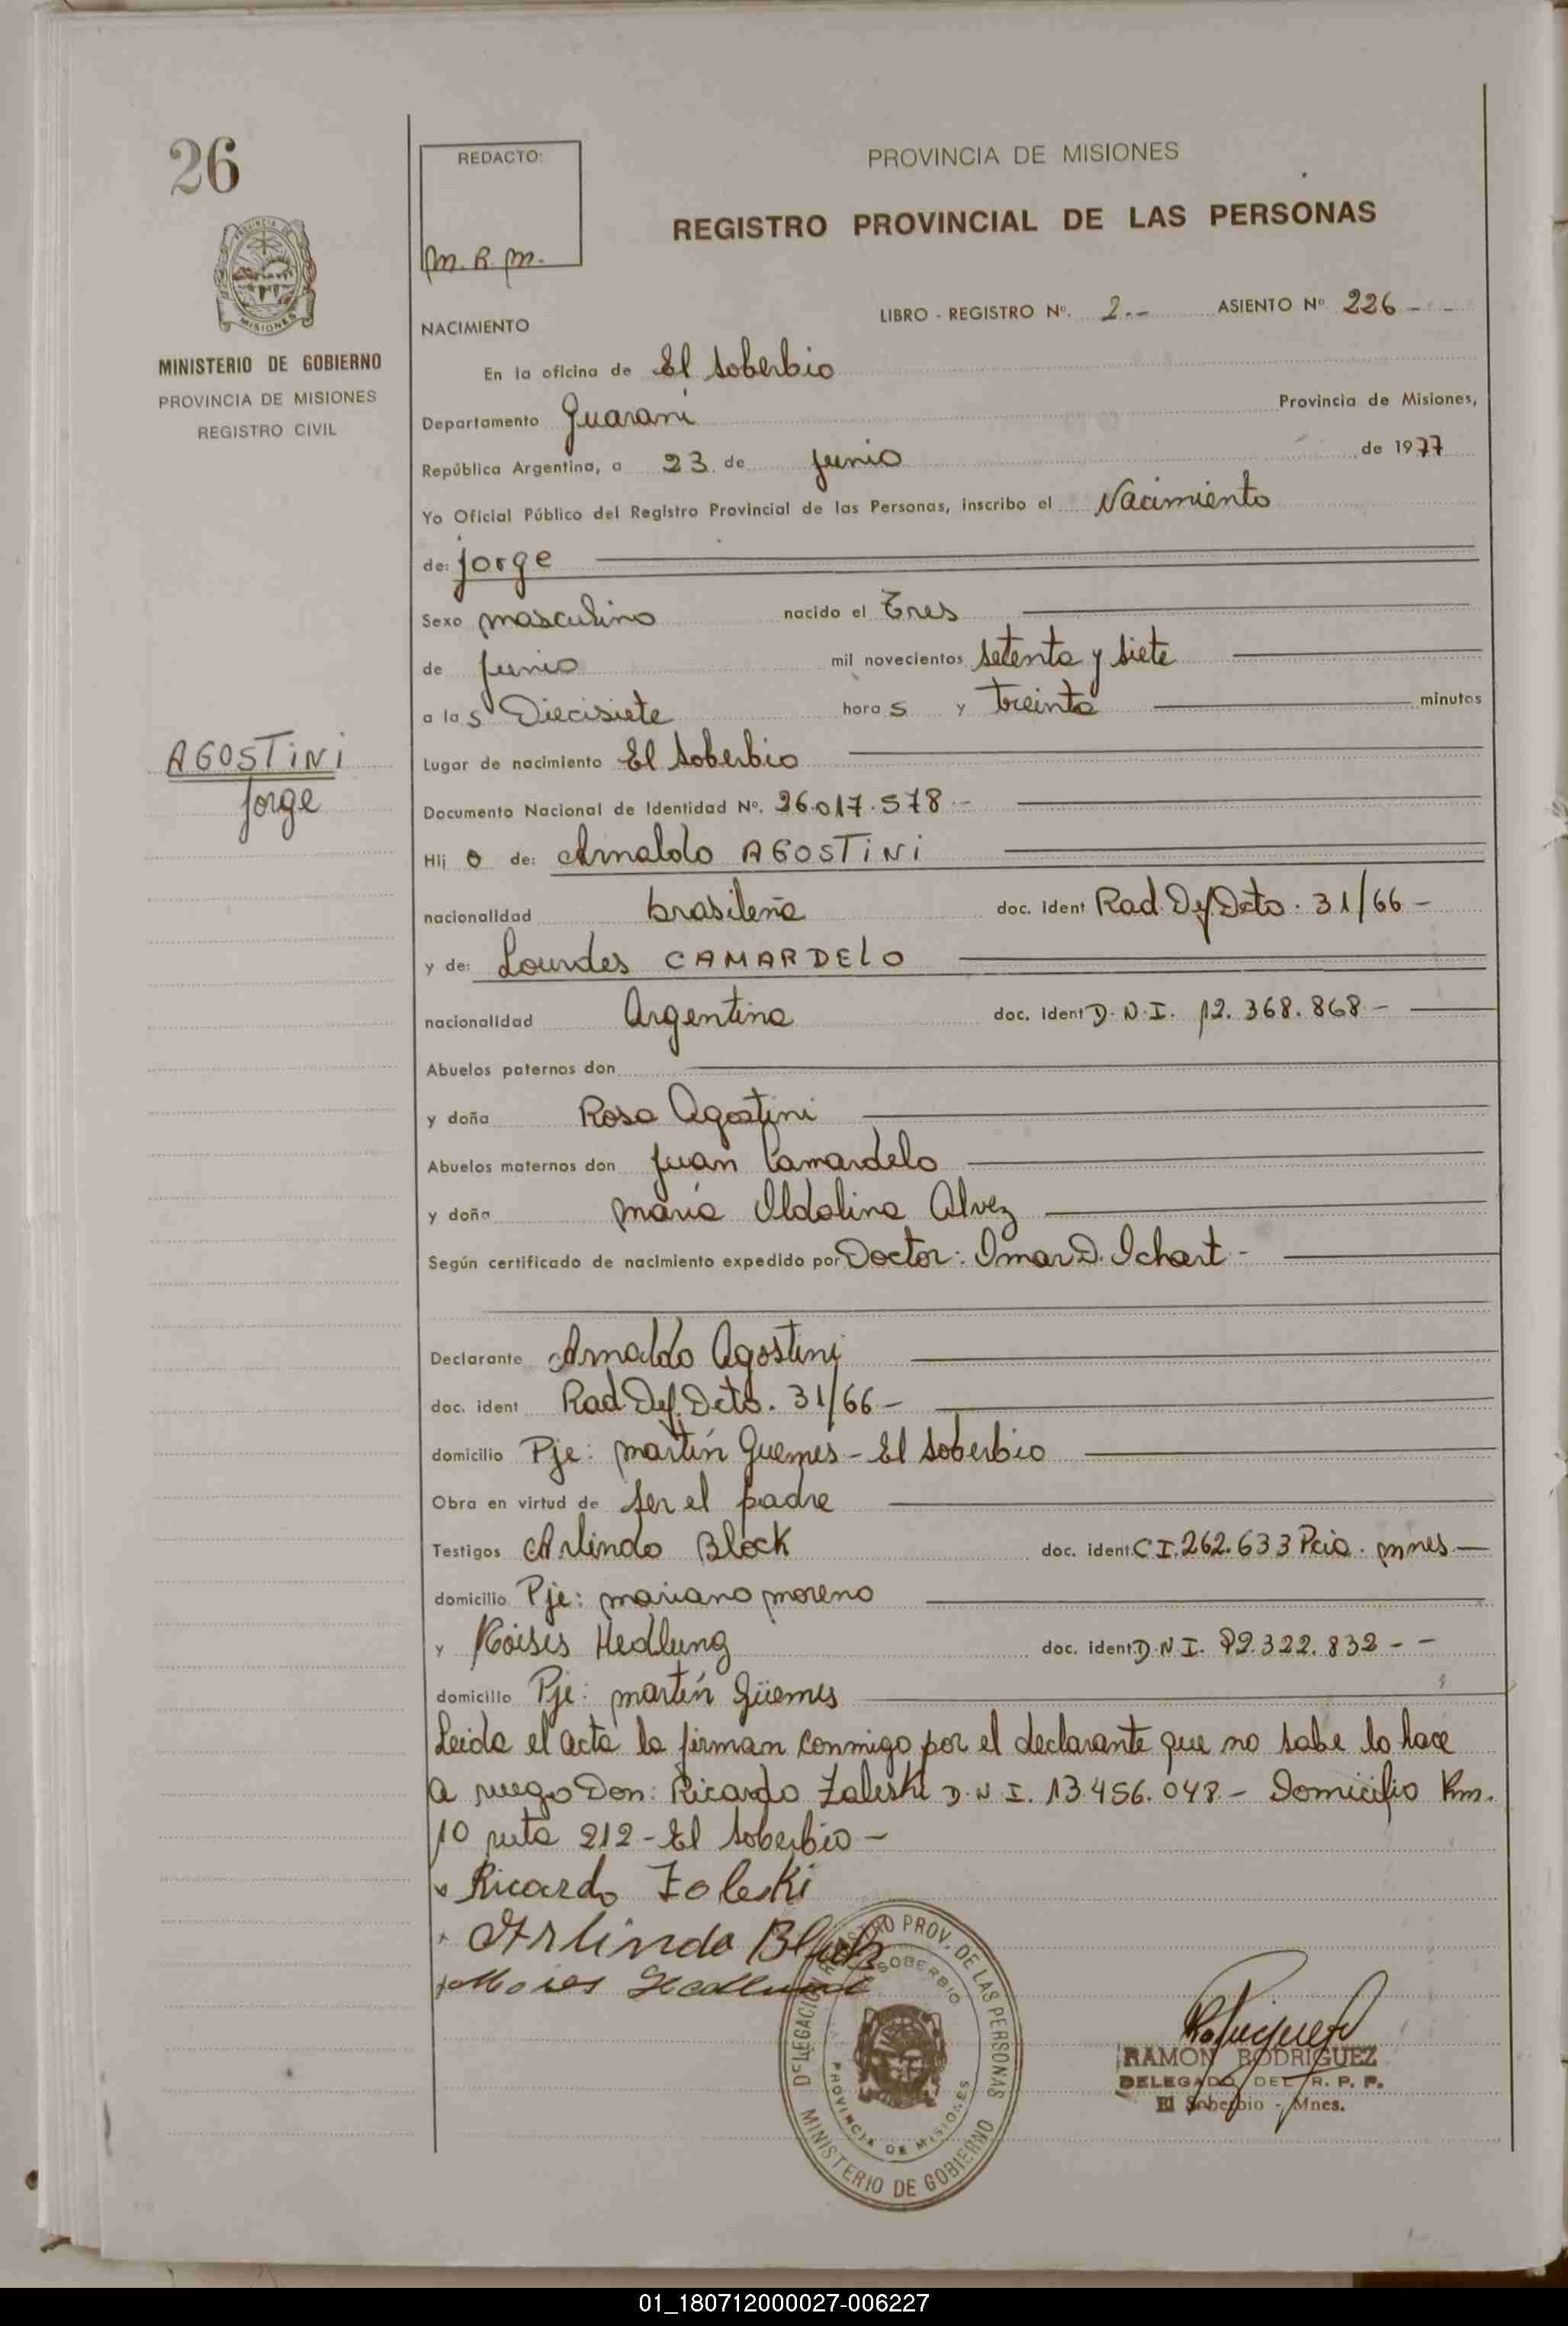 26
REDACTO:
M. R. M.
PROVINCIA DE MISIONES
REGISTRO PROVINCIAL DE LAS PERSONAS
MISIONES
MINISTERIO DE GOBIERNO
PROVINCIA DE MISIONES
REGISTRO CIVIL
NACIMIENTO LIBRO - REGISTRO Nº. 2.-- ASIENTO Nº 226 - -
En la oficina de El Soberbio
Departamento Guaraní Provincia de Misiones,
República Argentina, a 23 de junio de 1977
Yo Oficial Público del Registro Provincial de las Personas, inscribo el Nacimiento
de: Jorge
Sexo masculino nacido el Tres
de junio mil novecientos setenta y siete
a las Diecisiete horas y treinta minutos
AGOSTINI
Jorge
Lugar de nacimiento El Soberbio
Documento Nacional de Identidad Nº. 26.017.578 -
Hijo de: Arnaldo AGOSTINI
nacionalidad brasileña doc. ident Rad. Def. Dcto. 31/66 -
y de: Lourdes CAMARDELO
nacionalidad Argentina doc. ident D.N.I. 12.368.868 -
Abuelos paternos don
y doña Rosa Agostini
Abuelos maternos don Juan Camardelo
y doña María Ildolina Alvez
Según certificado de nacimiento expedido por Doctor: Omar D. Ichart -
Declarante Arnaldo Agostini
doc. ident Rad. Def. Dcto. 31/66 -
domicilio Pje: Martín Guemes - El Soberbio
Obra en virtud de ser el padre
Testigos Arlindo Block doc. ident. C I. 262.633 Pcia. Mnes. -
domicilio Pje: Mariano Moreno
y Moisés Hedlung doc. ident. D.N.I. 92.322.832 - -
domicilio Pje: Martín Güemes
Leida el acta la firman conmigo por el declarante que no sabe lo hace
a ruego Don: Ricardo Zaleski D.N.I. 13.456.048 - Domicilio Km.
10 ruta 212 - El Soberbio -
Ricardo Zaleski
Arlindo Block
Moises Hedlund
DELEGACION REGISTRO PROV. DE LAS PERSONAS
SOBERBIO
PROVINCIA DE MISIONES
MINISTERIO DE GOBIERNO
RAMON RODRIGUEZ
DELEGADO DEL R. P. P.
El Soberbio - Mnes.
01_180712000027-006227